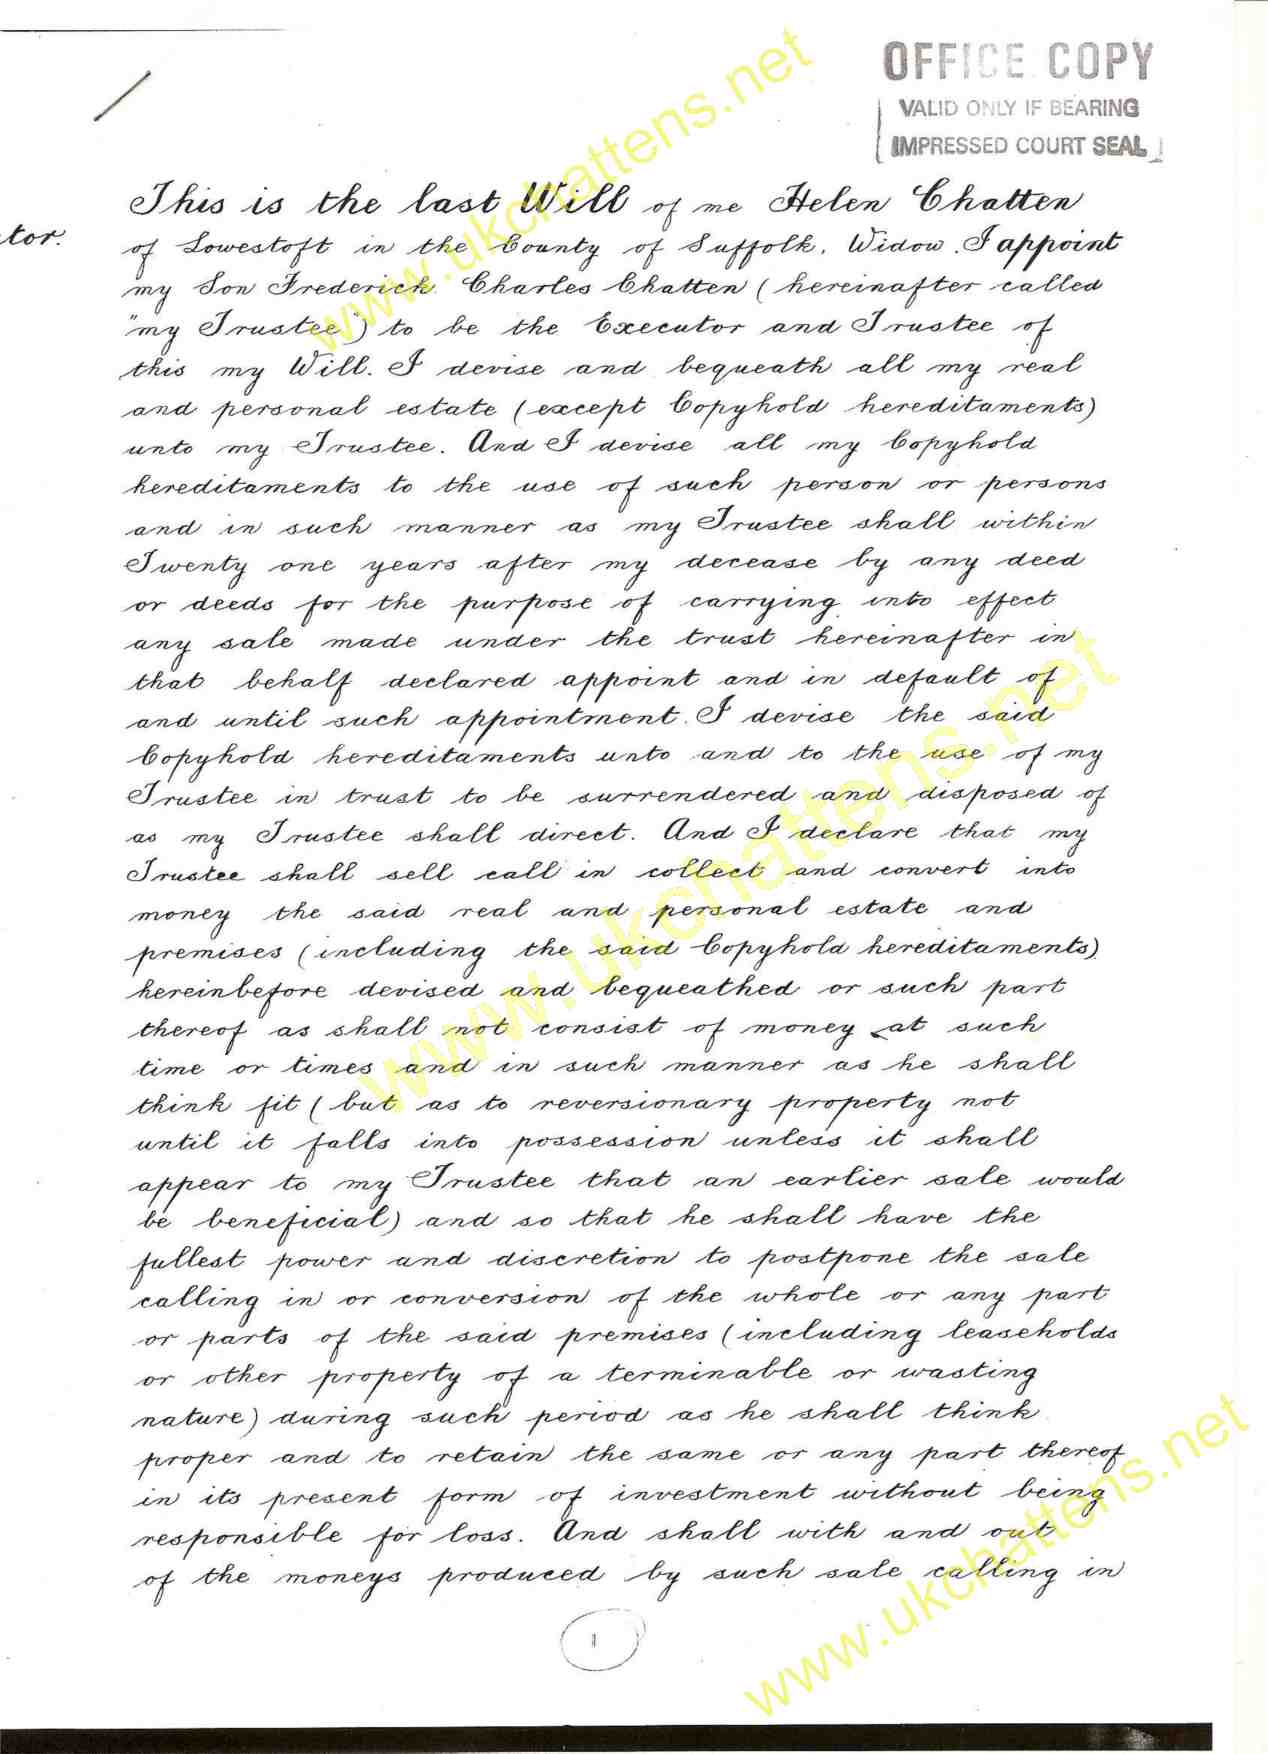 OFFICE COPY
VALID ONLY IF BEARING
IMPRESSED COURT SEAL
tor.
This is the last Will of me Helen Chatten
of Lowestoft in the County of Suffolk, Widow. I appoint
my Son Frederick Charles Chatten (hereinafter called
"my Trustee") to be the Executor and Trustee of
this my Will. I devise and bequeath all my real
and personal estate (except Copyhold hereditaments)
unto my Trustee. And I devise all my Copyhold
hereditaments to the use of such person or persons
and in such manner as my Trustee shall within
Twenty one years after my decease by any deed
or deeds for the purpose of carrying into effect
any sale made under the trust hereinafter in
that behalf declared appoint and in default of
and until such appointment. I devise the said
Copyhold hereditaments unto and to the use of my
Trustee in trust to be surrendered and disposed of
as my Trustee shall direct. And I declare that my
Trustee shall sell call in collect and convert into
money the said real and personal estate and
premises (including the said Copyhold hereditaments)
hereinbefore devised and bequeathed or such part
thereof as shall not consist of money at such
time or times and in such manner as he shall
think fit (but as to reversionary property not
until it falls into possession unless it shall
appear to my Trustee that an earlier sale would
be beneficial) and so that he shall have the
fullest power and discretion to postpone the sale
calling in or conversion of the whole or any part
or parts of the said premises (including leaseholds
or other property of a terminable or wasting
nature) during such period as he shall think
proper and to retain the same or any part thereof
in its present form of investment without being
responsible for loss. And shall with and out
of the moneys produced by such sale calling in
1
www.ukchattens.net
www.ukchattens.net
www.ukchattens.net